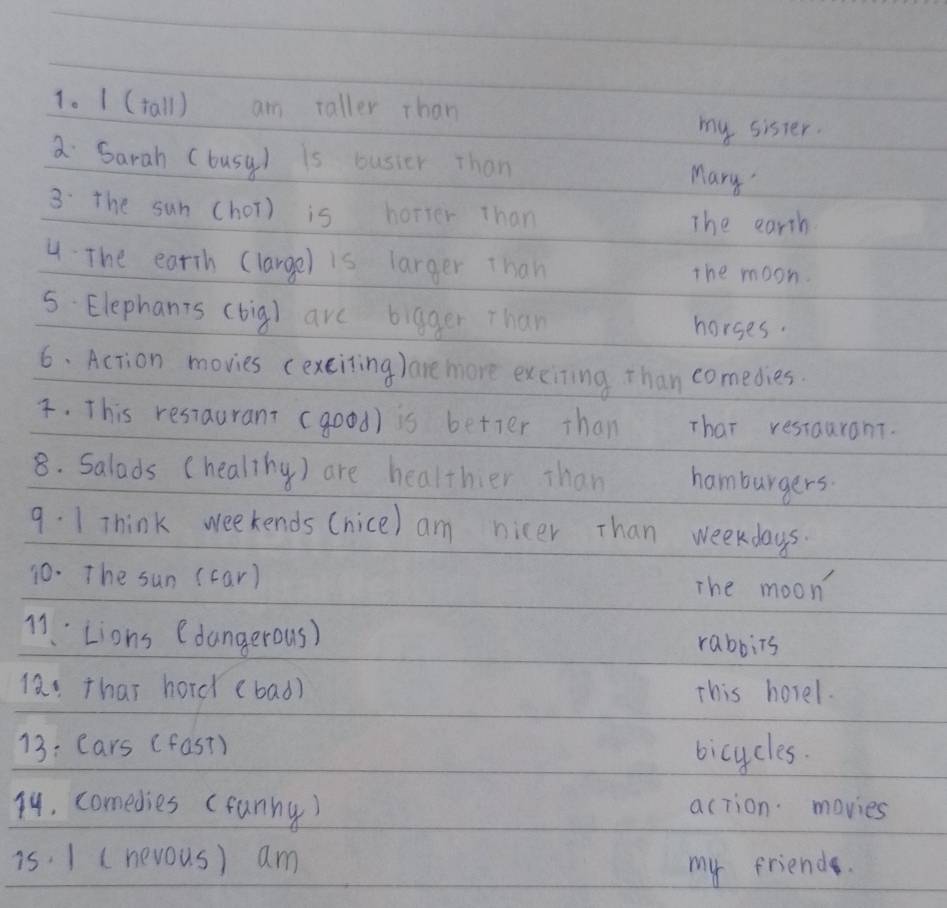 1. I (tall) am taller than my sister.
2. Sarah (busy) is busier than Mary.
3. The sun (hot) is hotter than The earth
4. The earth (large) is larger than the moon.
5. Elephants (big) are bigger than horses.
6. Action movies (exciting) are more exciting than comedies.
7. This restaurant (good) is better than That restaurant.
8. Salads (healthy) are healthier than hamburgers.
9. I Think weekends (nice) am nicer than weekdays.
10. The sun (far) The moon
11. Lions (dangerous) rabbits
12. that hotel (bad) This hotel.
13. Cars (fast) bicycles.
14. comedies (funny) action. movies
15. I (nevous) am my friends.